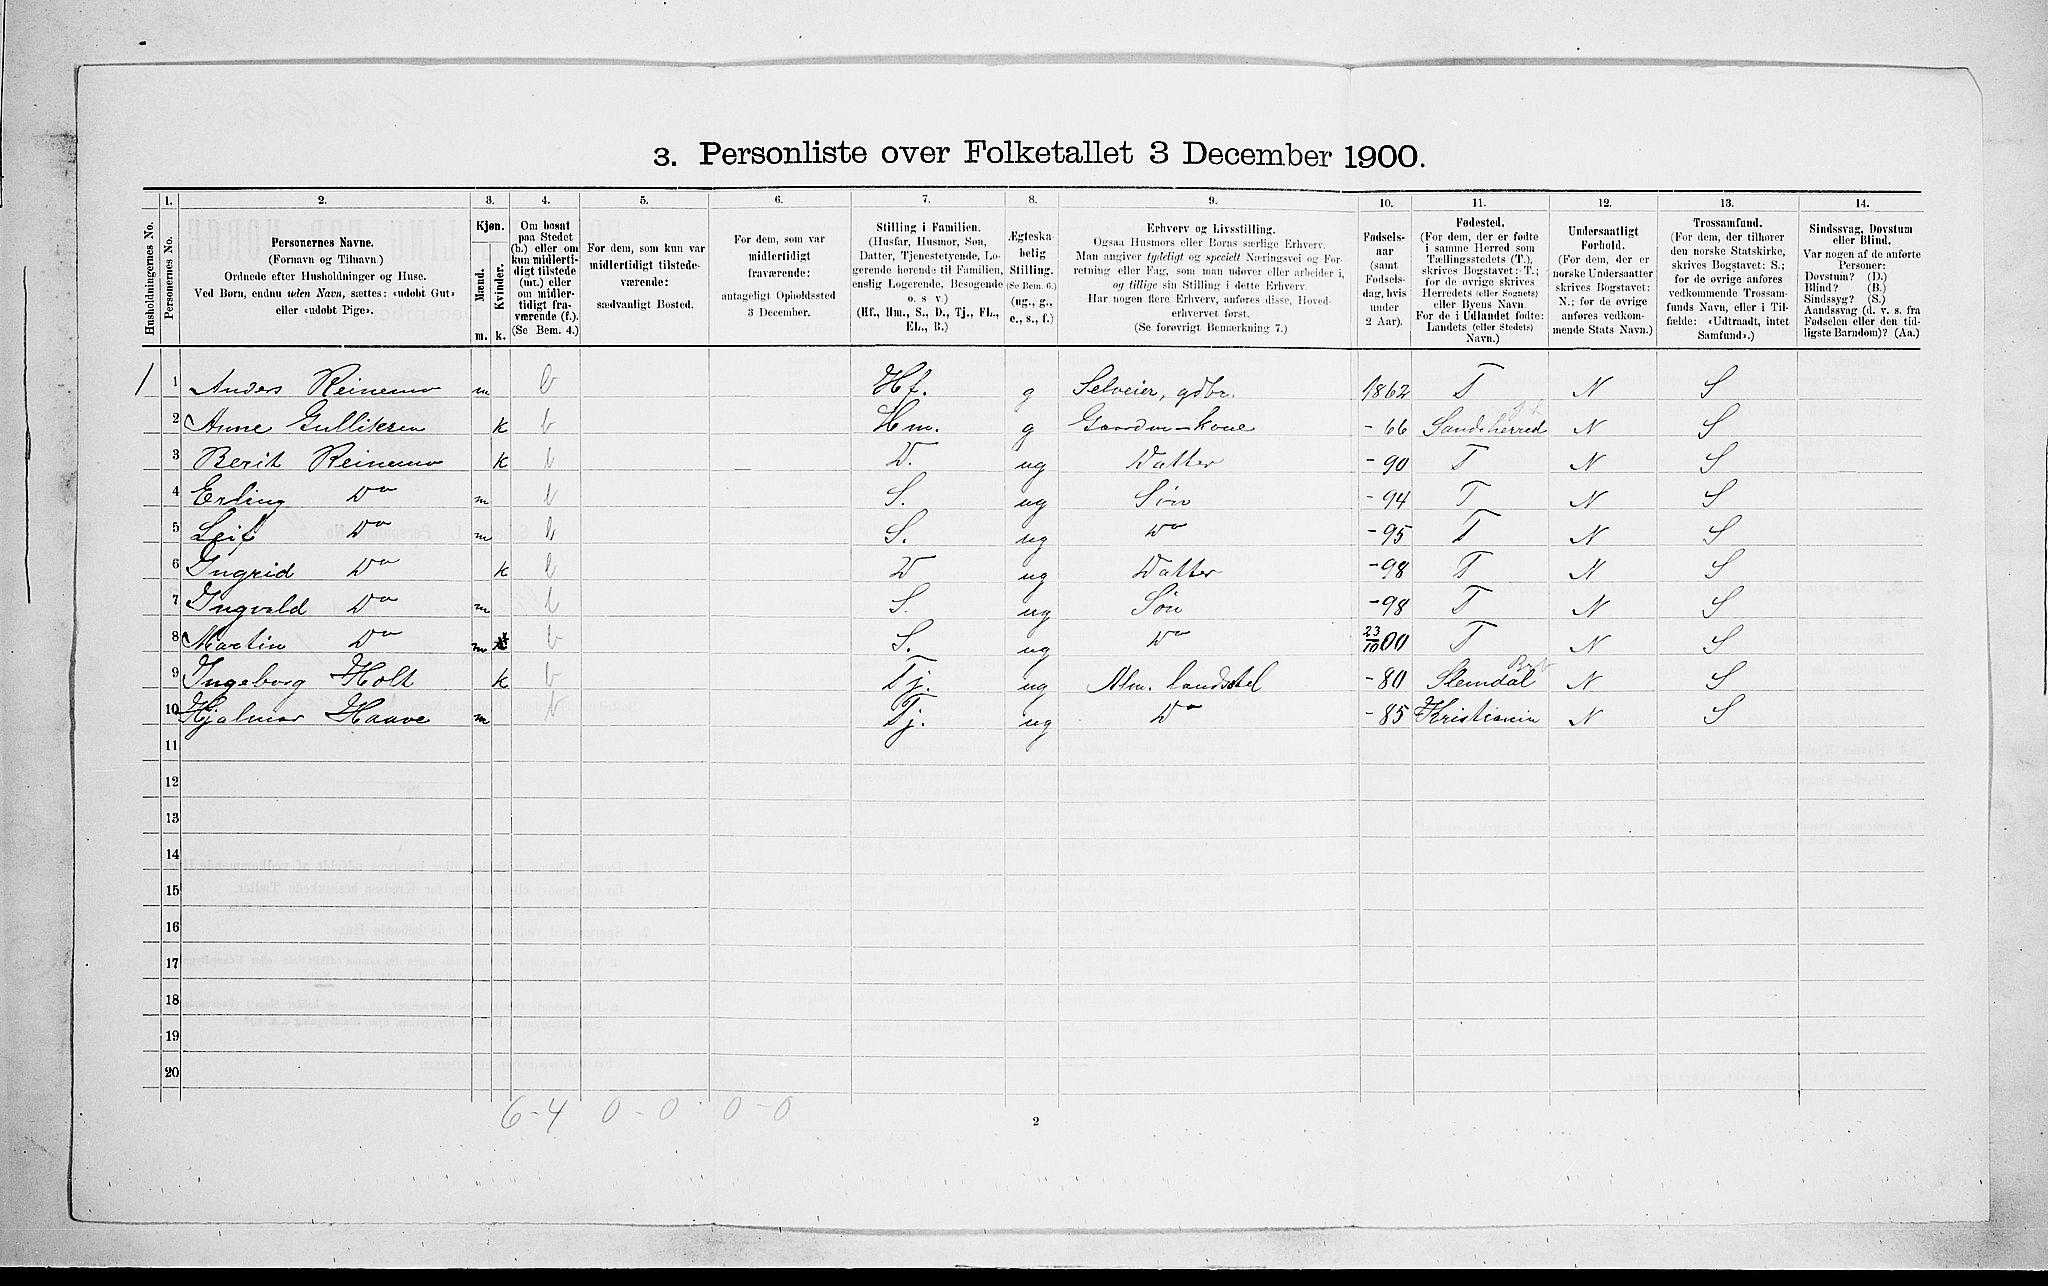 3. Personliste over Folketallet 3 December 1900.
1. 2. 3. 4. 5. 6. 7. 8. 9. 10. 11. 12. 13. 14.
Husholdningernes No.
Personernes No.
Personernes Navne.
(Fornavn og Tilnavn.)
Ordnede efter Husholdninger og Huse.
Ved Børn, endnu uden Navn, sættes: «udøbt Gut»
eller «udøbt Pige».
Kjøn.
Mænd.
Kvinder.
m. k.
Om bosat
paa Stedet
(b.) eller om
kun midlerti-
digt tilstede
(mt.) eller
om midler-
tidigt fra-
værende (f.).
(Se Bem. 4.)
For dem, som kun var
midlertidigt tilstede-
værende:
sædvanligt Bosted.
For dem, som var
midlertidigt
fraværende:
antageligt Opholdssted
3 December.
Stilling i Familien.
(Husfar, Husmor, Søn,
Datter, Tjenestetyende, Lo-
gerende hørende til Familien,
enslig Logerende, Besøgende
o. s v.)
(Hf., Hm., S., D., Tj., FL.,
EL., B.)
Ægteska-
belig
Stilling.
(Se Bem. 6.)
(ug., g.,
e., s., f.)
Erhverv og Livsstilling.
Ogsaa Husmors eller Børns særlige Erhverv.
Man angiver tydeligt og specielt Næringsvei og For-
retning eller Fag, som man udøver eller arbeider i,
og tillige sin Stilling i dette Erhverv.
Har nogen flere Erhverv, anføres disse, Hoved-
erhvervet først.
(Se forøvrigt Bemærkning 7.)
Fødsels-
aar
(samt
Fødsels-
dag, hvis
under
2 Aar).
Fødested.
(For dem, der er fødte
i samme Herred som
Tællingsstedets (T.),
skrives Bogstavet: T.;
for de øvrige skrives
Herredets (eller Sognets)
eller Byens Navn.
For de i Udlandet fødte:
Landets (eller Stedets)
Navn.)
Undersaatligt
Forhold.
(For dem, der er
norske Undersaatter
skrives Bogstavet:
N.; for de øvrige
anføres vedkom-
mende Stats Navn.)
Trossamfund.
(For dem, der tilhører
den norske Statskirke,
skrives Bogstavet: S.;
for de øvrige anføres
vedkommende Trossam-
funds Navn, eller i Til-
fælde: «Udtraadt, intet
Samfund».)
Sindssvag, Døvstum
eller Blind.
Var nogen af de anførte
Personer:
Døvstum? (D.)
Blind? (B.)
Sindssyg? (S.)
Aandssvag (d. v. s. fra
Fødselen eller den tid-
ligste Barndom)? (Aa.)
1 1 Anders Reinemo m b Hf. g Selveier, gdbr. 1862 T N S
2 Anne Gulliksen k b Hm. g Gaardm-kone -66 Sandeherred N S
3 Berit Reinemo k b D. ug Datter -90 T N S
4 Erling Do m b S. ug Søn -94 T N S
5 Leif Do m b S. ug Do -95 T N S
6 Ingrid Do k b D ug Datter -98 T N S
7 Ingvald Do m b S. ug Søn -98 T N S
8 Martin Do m b S. ug Do 23/10 00 T N S
9 Ingeborg Holt k b Tj. ug Alm. landsstel -80 Slemdal N S
10 Hjalmar Haave m b Tj. ug Do -85 Kristiania N S
11
12
13
14
15
16
17
18
19
20
6-4 0-0 0-0
2